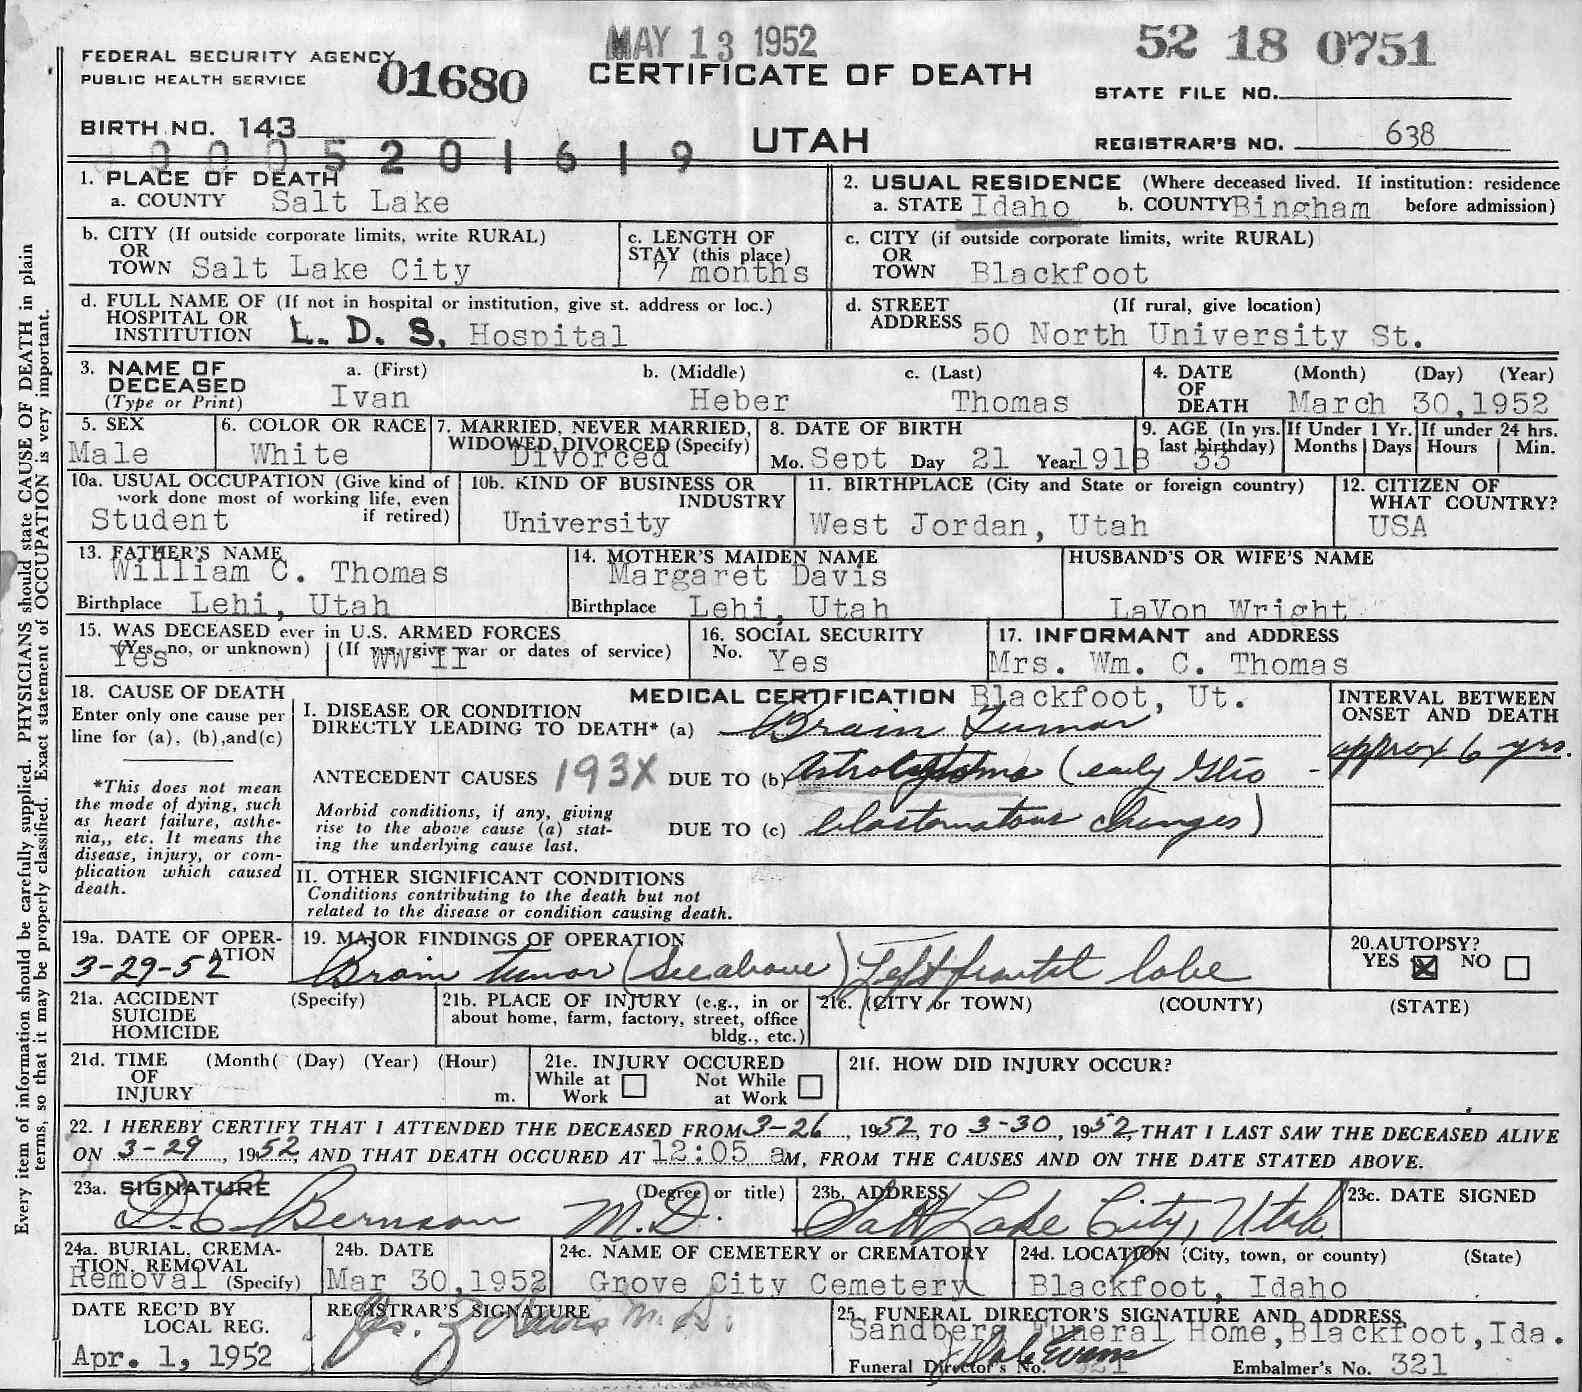 MAY 13 1952
52 18 0751
FEDERAL SECURITY AGENCY
PUBLIC HEALTH SERVICE
01680
CERTIFICATE OF DEATH
STATE FILE NO.
BIRTH NO. 143
UTAH
REGISTRAR'S NO. 638
0005201619
1. PLACE OF DEATH
a. COUNTY Salt Lake
2. USUAL RESIDENCE (Where deceased lived. If institution: residence before admission)
a. STATE Idaho b. COUNTY Bingham
b. CITY (If outside corporate limits, write RURAL)
OR
TOWN Salt Lake City
c. LENGTH OF
STAY (this place)
7 months
c. CITY (if outside corporate limits, write RURAL)
OR
TOWN Blackfoot
d. FULL NAME OF (If not in hospital or institution, give st. address or loc.)
HOSPITAL OR
INSTITUTION L. D. S. Hospital
d. STREET (If rural, give location)
ADDRESS 50 North University St.
3. NAME OF
DECEASED
(Type or Print)
a. (First) b. (Middle) c. (Last)
Ivan Heber Thomas
4. DATE (Month) (Day) (Year)
OF
DEATH March 30, 1952
5. SEX
Male
6. COLOR OR RACE
White
7. MARRIED, NEVER MARRIED,
WIDOWED, DIVORCED (Specify)
Divorced
8. DATE OF BIRTH
Mo. Sept Day 21 Year 1918
9. AGE (In yrs. last birthday)
33
If Under 1 Yr.
Months Days
If under 24 hrs.
Hours Min.
10a. USUAL OCCUPATION (Give kind of
work done most of working life, even
if retired)
Student
10b. KIND OF BUSINESS OR
INDUSTRY
University
11. BIRTHPLACE (City and State or foreign country)
West Jordan, Utah
12. CITIZEN OF
WHAT COUNTRY?
USA
13. FATHER'S NAME
William C. Thomas
Birthplace Lehi, Utah
14. MOTHER'S MAIDEN NAME
Margaret Davis
Birthplace Lehi, Utah
HUSBAND'S OR WIFE'S NAME
LaVon Wright
15. WAS DECEASED ever in U.S. ARMED FORCES
(Yes, no, or unknown) (If yes, give war or dates of service)
Yes WW II
16. SOCIAL SECURITY
No. Yes
17. INFORMANT and ADDRESS
Mrs. Wm. C. Thomas
Blackfoot, Ut.
18. CAUSE OF DEATH
Enter only one cause per
line for (a), (b), and (c)
*This does not mean
the mode of dying, such
as heart failure, asthe-
nia,, etc. It means the
disease, injury, or com-
plication which caused
death.
MEDICAL CERTIFICATION
I. DISEASE OR CONDITION
DIRECTLY LEADING TO DEATH* (a) Brain Tumor
ANTECEDENT CAUSES 193X DUE TO (b) Astrocytoma (early Glio -
Morbid conditions, if any, giving
rise to the above cause (a) stat-
ing the underlying cause last.
DUE TO (c) blastomatous changes)
INTERVAL BETWEEN
ONSET AND DEATH
approx 6 yrs.
II. OTHER SIGNIFICANT CONDITIONS
Conditions contributing to the death but not
related to the disease or condition causing death.
19a. DATE OF OPER-
ATION
3-29-52
19. MAJOR FINDINGS OF OPERATION
Brain tumor (See above) Left frontal lobe
20. AUTOPSY?
YES NO
21a. ACCIDENT (Specify)
SUICIDE
HOMICIDE
21b. PLACE OF INJURY (e.g., in or
about home, farm, factory, street, office
bldg., etc.)
21c. (CITY or TOWN) (COUNTY) (STATE)
21d. TIME (Month( (Day) (Year) (Hour)
OF
INJURY m.
21e. INJURY OCCURED
While at Work Not While at Work
21f. HOW DID INJURY OCCUR?
22. I HEREBY CERTIFY THAT I ATTENDED THE DECEASED FROM 3-26, 1952, TO 3-30, 1952, THAT I LAST SAW THE DECEASED ALIVE
ON 3-29, 1952, AND THAT DEATH OCCURED AT 12:05 aM, FROM THE CAUSES AND ON THE DATE STATED ABOVE.
23a. SIGNATURE (Degree or title)
D. C. Bernson M.D.
23b. ADDRESS
Salt Lake City, Utah
23c. DATE SIGNED
24a. BURIAL, CREMA-
TION, REMOVAL
Removal (Specify)
24b. DATE
Mar 30, 1952
24c. NAME OF CEMETERY OR CREMATORY
Grove City Cemetery
24d. LOCATION (City, town, or county) (State)
Blackfoot, Idaho
DATE REC'D BY
LOCAL REG.
Apr. 1, 1952
REGISTRAR'S SIGNATURE
M.D.
25. FUNERAL DIRECTOR'S SIGNATURE AND ADDRESS
Sandberg Funeral Home, Blackfoot, Ida.
Dale Evans
Funeral Director's No. 321 Embalmer's No. 321
Every item of information should be carefully supplied. PHYSICIANS should state CAUSE OF DEATH in plain
terms, so that it may be properly classified. Exact statement of OCCUPATION is very important.